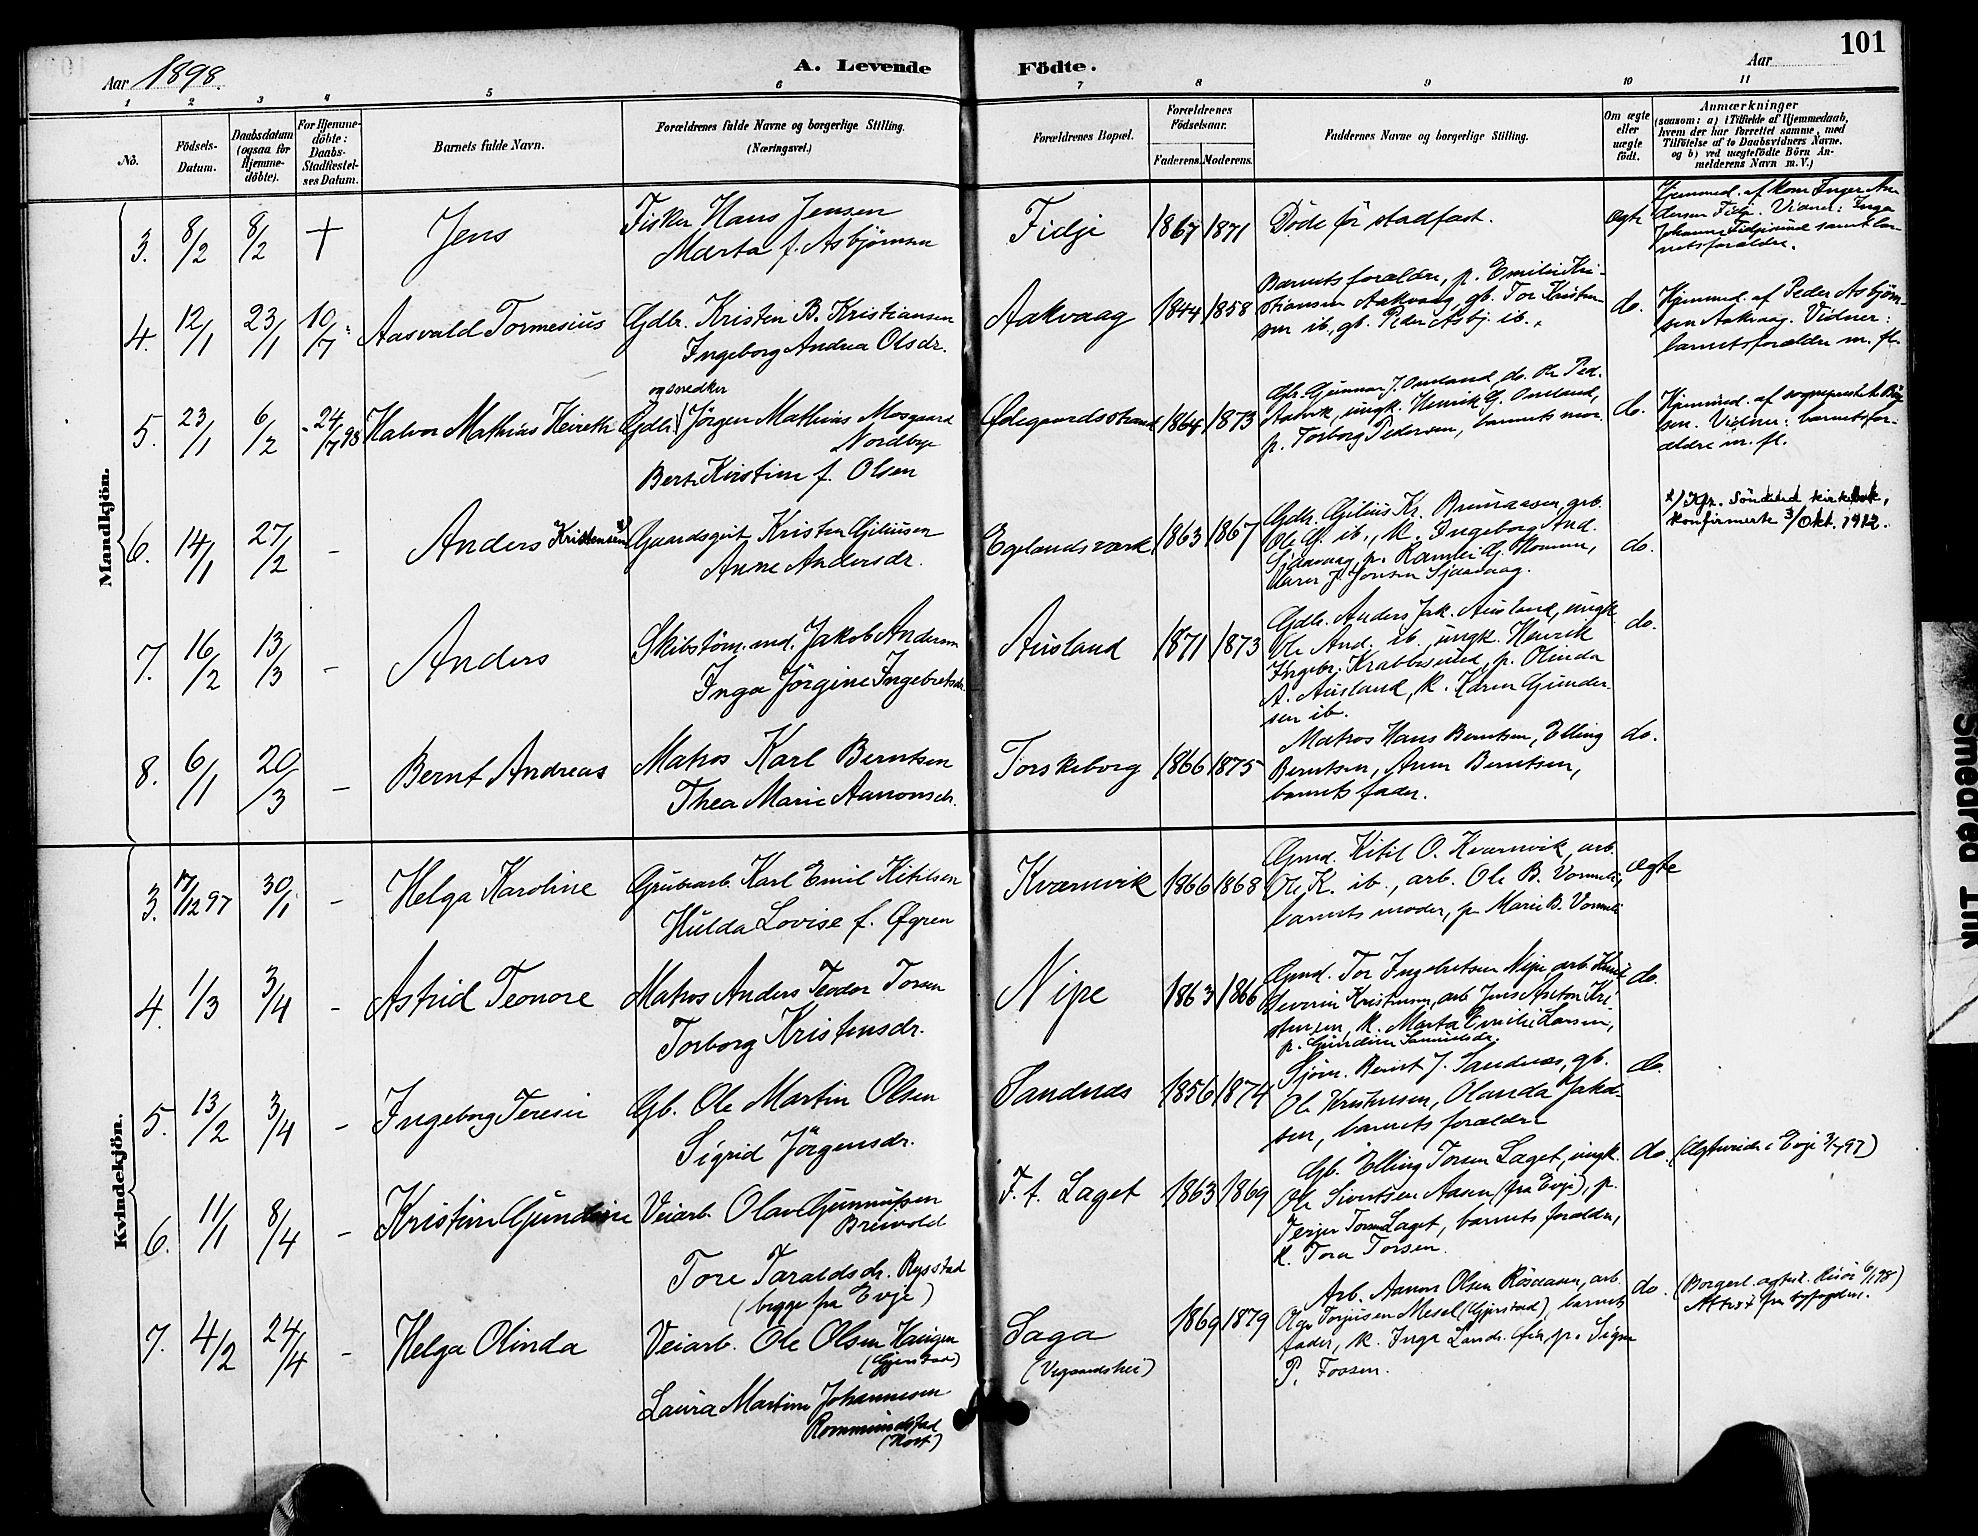 101
Aar 1898.
A. Levende Födte.
Aar
1 2 3 4 5 6 7 8 9 10 11
No.
Födsels-Datum.
Daabsdatum (ogsaa for Hjemme-döbte).
For Hjemme-döbte: Daabs-Stadfæstelses Datum.
Barnets fulde Navn.
Forældrenes fulde Navne og borgerlige Stilling. (Næringsvei.)
Forældrenes Bopæl.
Forældrenes Födselsaar.
Faderens. Moderens.
Faddernes Navne og borgerlige Stilling.
Om ægte eller uægte födt.
Anmærkninger
(saasom: a) i Tilfælde af Hjemmedaab, hvem der har forrettet samme, med Tilföielse af to Daabsvidners Navne. og b) ved uægtefödte Börn Anmelderens Navn m. V.)
Mandkjön.
3. 8/2 8/2 + Jens
Fisker Hans Jensen
Marta f. Asbjørnsen
Fidje 1867 1871 Døde før stadfæst. ægte
Hjemmed. af kone Inger Andersen Fidje. Vidner: Inga Johanne samt barnets forældre.
4. 12/1 23/1 10/7 Aasvald Tormesius
Gdbr. Kristen B. Kristiansen
Ingeborg Andrea Olsdr.
Aakvaag 1844 1858
Barnets forældre, p. Emilie Kristiansen Aakvaag, gb. Tor Kristensen ib., gb. Peder Asbj. ib.
do.
Hjemmed. af Peder Asbjørnsen Aakvaag. Vidner: barnets forældre m. fl.
5. 23/1 6/2 24/7 98 Halvor Mathias Keireth
og snedker
Gdbr. Jörgen Mathias Mosgaard
Nordbye
Berte Kirstine f. Olsen
Ødegaardsstrand 1864 1873
Gbr. Gunnar J. Omland, do. Ole Ped. ungk. Henrik G. Omland, barnets mor. p. Torborg Pedersen,
do.
Hjemmed. af Vidner: barnets forældre m. fl.
6. 14/1 27/2 - Anders Kristensen x)
Gaardsgut Kristen Gjeliusen
Anne Andersdr.
Egelandsværk 1863 1867
Gdbr. Gjelius Kr. arb. Ole G. ib., k. Ingeborg And.
do.
x) Kfr. Söndeled kirkebok, konfirmerte 3/Okt. 1912.
7. 16/2 13/3 - Anders
Skibstöm.md. Jakob Andersen
Inga Jörgine Ingebretsdr.
Ausland 1871 1873
Gdbr. Anders Jak. Ausland, ungk.
Ole And. ib., ungk. Henrik
Ingebr. Krabbesund, p. Olinda
A. Ausland, k. Karen Gundersen ib.
do.
8. 6/1 20/3 - Bernt Andreas
Matros Karl Berntsen
Thea Marie Aanonsdr.
Torskeborg 1866 1875
Matros Hans Berntsen, Elling
Berntsen, Anne Berntsen,
barnets fader.
do.
Kvindekjön.
3. 17/12 97 30/1 - Helga Karoline
Grubearb. Karl Emil Kitilsen
Hulda Lovise f. Øgren
Kvernvik 1866 1868
Gmd. Kitil O. Kvernvik, arb.
Ole K. ib., arb. Ole B. Vormeli,
barnets moder, p. Marie B. Vormeli
ægte
4. 1/3 3/4 - Astrid Teonore
Matros Anders Teodor Torsen
Torborg Kristensdr.
Nipe 1863 1866
Gmd. Tor Ingebretsen Nipe, arb. Knut
Severin Kristensen, arb. Jens Anton Kristensen, k. Marta Emilie Larsen,
p. Gundine Samuelsdr.
do.
5. 13/2 3/4 - Ingeborg Teresie
Gb. Ole Martin Olsen
Sigrid Jörgensdr.
Sandnæs 1856 1874
Sjöm. Bernt J. Sandnæs, gb.
Ole Kristensen, Olanda Jakobsen, barnets forældre
do.
6. 11/1 8/4 - Kristine Gundine
Veiarb. Olav Gunnufsen
Breivold
Tore Taraldsdr. Rysstad
(begge fra Evje)
F. t. Laget 1863 1869
Gb. Elling Torsen Laget, ungk.
Ole Sivertsen Aasen (fra Evje), p.
Terjer Torsen Laget, barnets forældre,
k. Tora Torsen.
do. (Ægteviede i Evje 3/7 97)
7. 4/2 24/4 - Helga Olinda
Veiarb. Ole Olsen Haugen
(Gjerstad)
Laura Martine Johannesen
Rommundstad
(Holt)
Saga
(Vegaardshei)
1869 1879
Arb. Aanon Olsen Røsaasen, arb.
Olav Torjusen Mesel (Gjerstad), barnets
fader, k. Inga p. Signe
P. Torsen.
do. (Borgerl. ægtev. Risør 6/1 98)
Attest fra byfogden.
Smedred Tilk